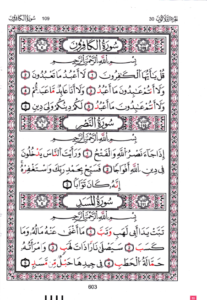 سُورَةُ الكَافِرُونَ ١٠٩ جزء عم ٣٠
سُورَةُ الكَافِرُونَ
بِسْمِ اللَّهِ الرَّحْمَٰنِ الرَّحِيمِ
قُلْ يَا أَيُّهَا الْكَافِرُونَ ۝ لَا أَعْبُدُ مَا تَعْبُدُونَ ۝
وَلَا أَنتُمْ عَابِدُونَ مَا أَعْبُدُ ۝ وَلَا أَنَا عَابِدٌ مَّا عَبَدتُّمْ ۝
وَلَا أَنتُمْ عَابِدُونَ مَا أَعْبُدُ ۝ لَكُمْ دِينُكُمْ وَلِيَ دِينِ ۝
سُورَةُ النَّصْرِ
بِسْمِ اللَّهِ الرَّحْمَٰنِ الرَّحِيمِ
إِذَا جَاءَ نَصْرُ اللَّهِ وَالْفَتْحُ ۝ وَرَأَيْتَ النَّاسَ يَدْخُلُونَ
فِي دِينِ اللَّهِ أَفْوَاجًا ۝ فَسَبِّحْ بِحَمْدِ رَبِّكَ وَاسْتَغْفِرْهُ
إِنَّهُ كَانَ تَوَّابًا ۝
سُورَةُ المَسَدِ
بِسْمِ اللَّهِ الرَّحْمَٰنِ الرَّحِيمِ
تَبَّتْ يَدَا أَبِي لَهَبٍ وَتَبَّ ۝ مَا أَغْنَىٰ عَنْهُ مَالُهُ وَمَا
كَسَبَ ۝ سَيَصْلَىٰ نَارًا ذَاتَ لَهَبٍ ۝ وَامْرَأَتُهُ
حَمَّالَةَ الْحَطَبِ ۝ فِي جِيدِهَا حَبْلٌ مِّن مَّسَدٍ ۝
603